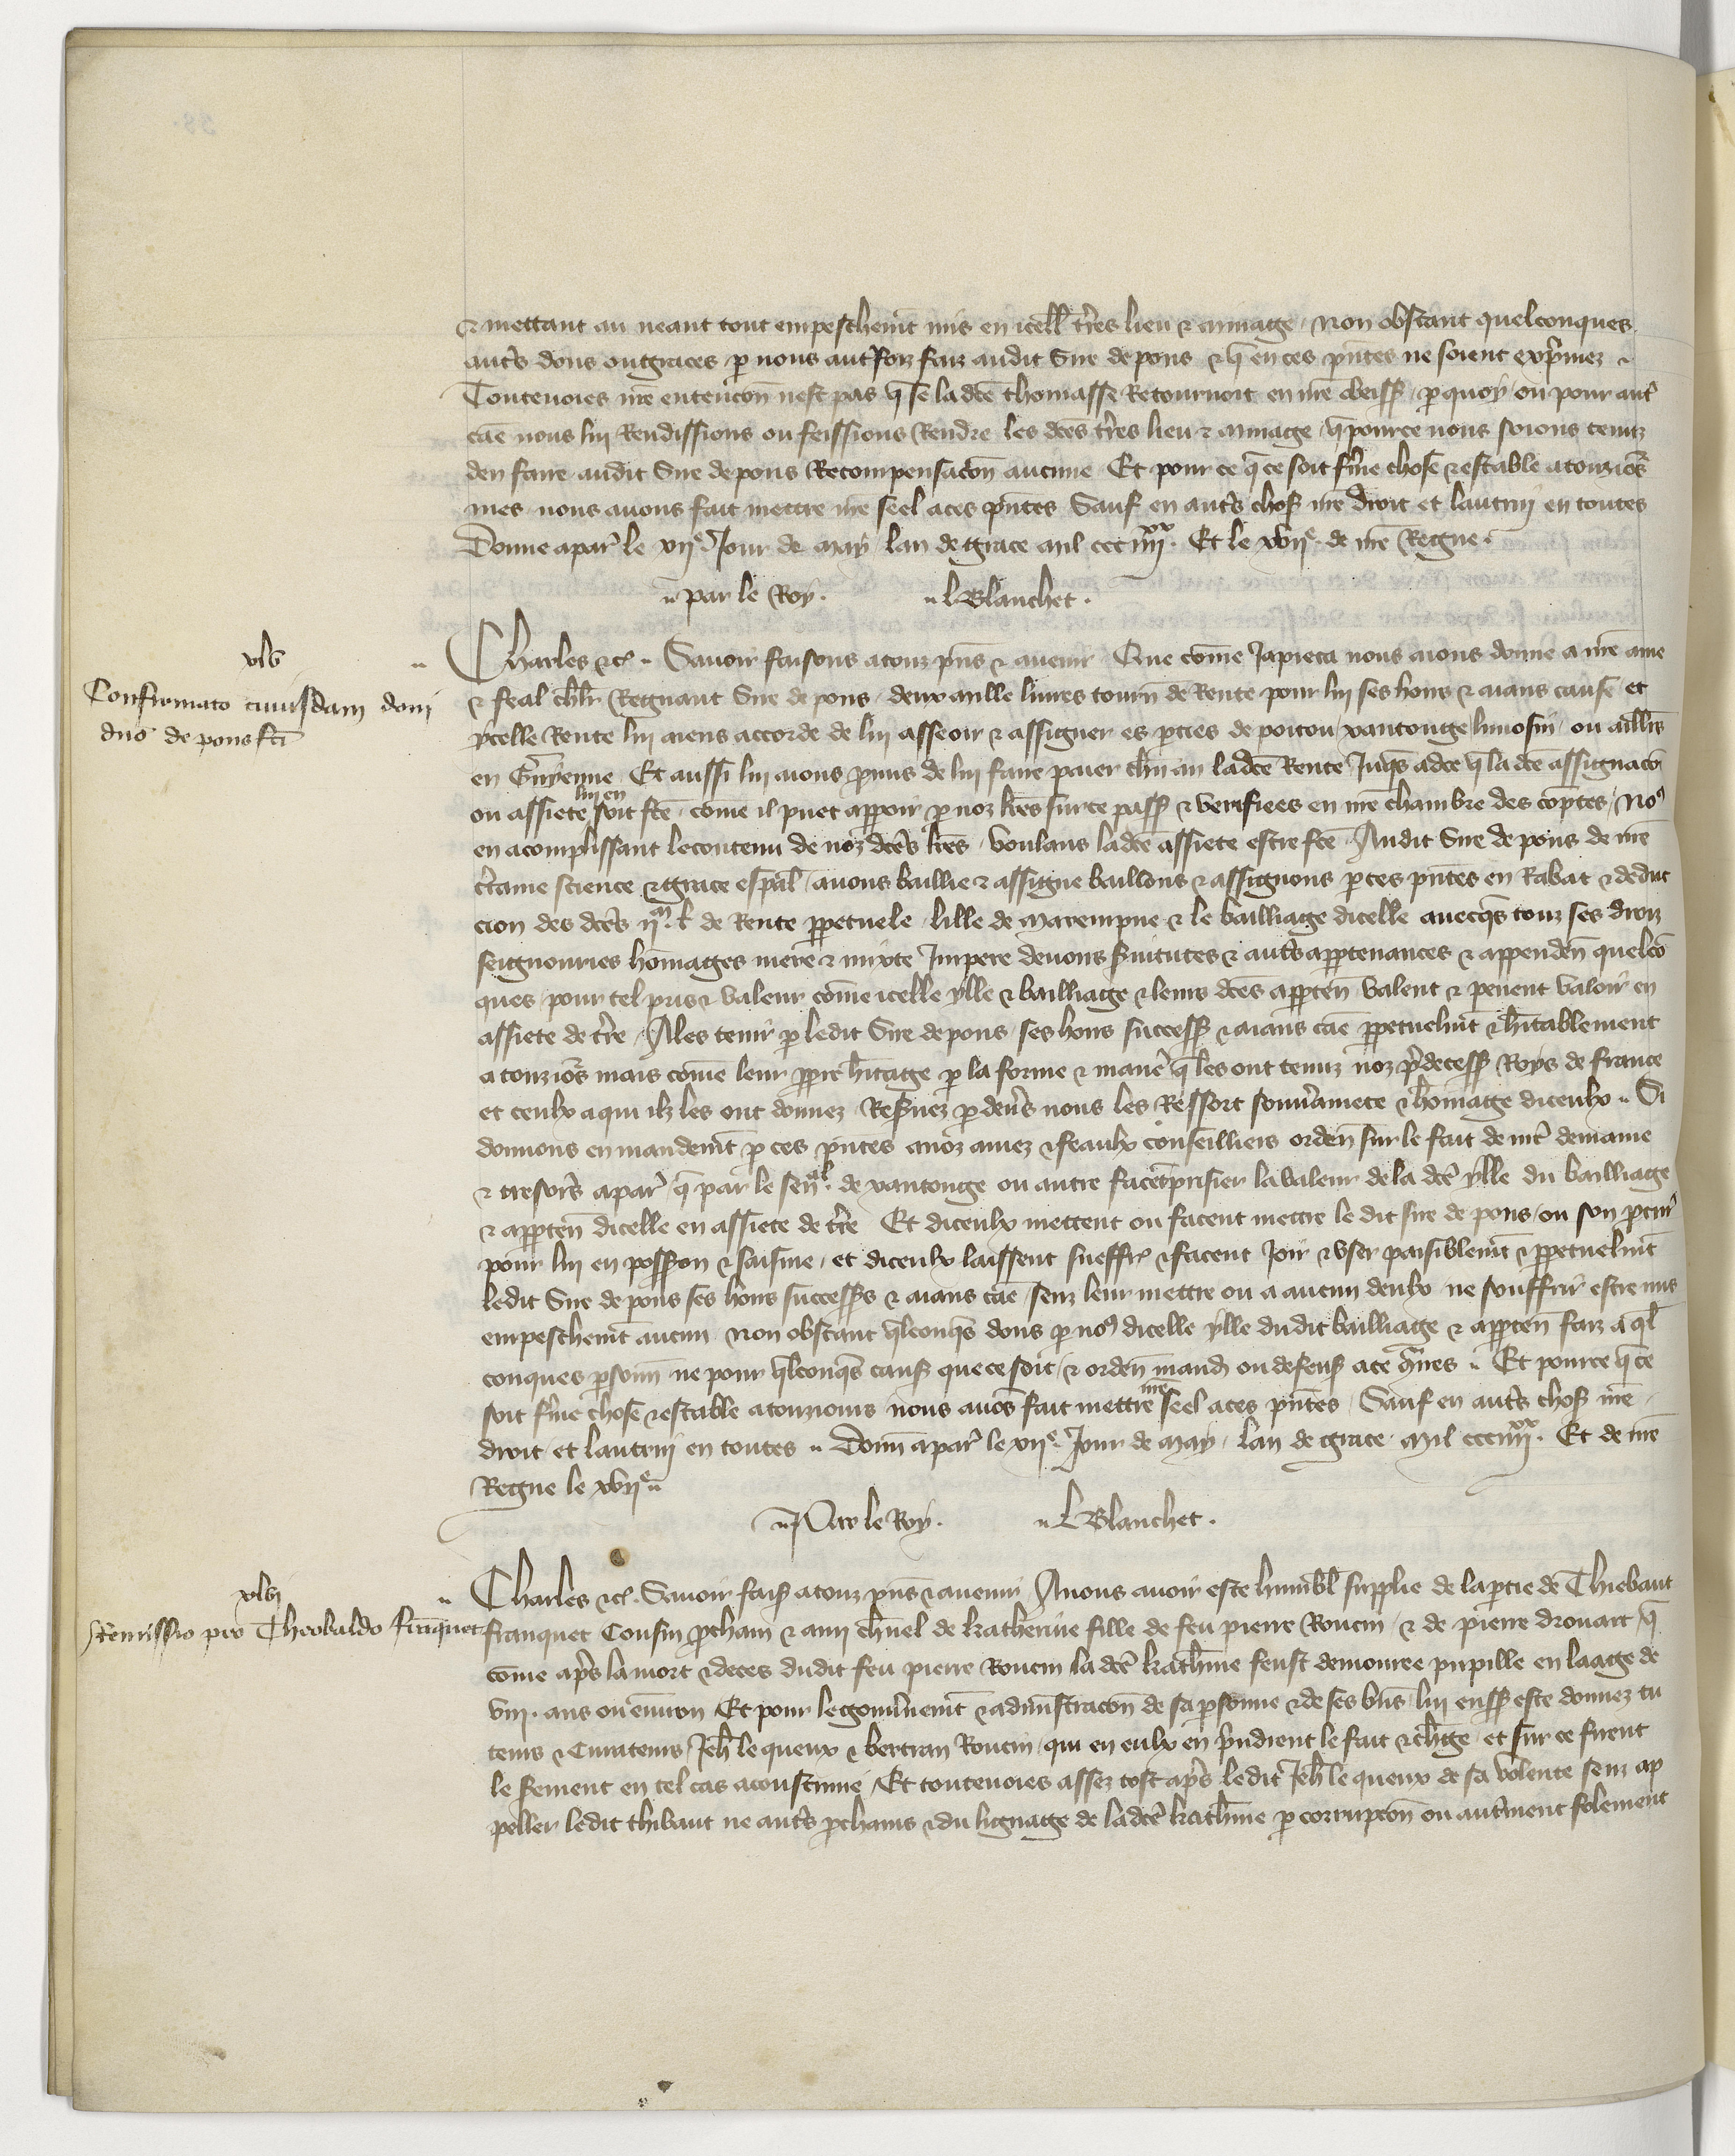 & mettant au neant tout empeschemt mis en icell tres lieu & minage . Non obstant quelconques
auts dons ou graces p nous autrfoiz faiz audit Sire de pons & q en ces pntes ne soient exprimez &
Toutevoies nre entencon nest pas q se ladce thomasse Retournoit en nre obeiss . p quoy ou pour autr
cae nous lui Rendissions ou feissions Rendre les dces tres lieu & minage q pource nous soions tenuz
den faire audit Sire de pons Recompensacon aucune Et pour ce q ce soit fme chose & estable a touzios
mes nous avons fait mettre nre seel a ces pntes Sauf en auts chos nre droit et lautruy en toutes
Donne a par le viie Jour de may lan de grace mil ccc iiiixx . Et le xviie . de nre Regne .
par le Roy . L Blanchet .
xlv
Confirmato cuiusdam doni
dno de pons fci
Charles &c . Savoir faisons a touz pns & avenir Que come Japieca nous aions donne a nre ame
& feal chlr Regnaut Sire de pons . deux mille livres tourn de Rente pour lui ses hoirs & aians cause et
ycelle Rente lui aiens accorde de lui asseoir & assigner es pties de poitou xantonge limosin . ou aillrs
en Guyenne . Et aussi lui aions pmis de lui faire paier chun an ladce Rente Juqs adce q la dce assignacon
ou assiete lui en soit fce . come il puet apparoir p noz lres sur ce pass & verifiees en nre chambre des comptes . Nos
en acomplissant lecontenu de noz dces lres . voulans ladce assiete estre fce Audit Sire de pons de nre
ctaine science & grace espal . avons baillie & assigne baillons & assignons p ces pntes en Rabat & deduc
cion des dces iim . l de Rente ppetuele . lille de marempne & le bailliage dicelle avecqs touz ses droiz
seignouries homages mere & mixte Impere devoirs svitutes & auts apptenances & appenden quelco
ques . pour tel pris & valeur come icelle ylle & bailliage & leurs dces apptén valent & pevent valoir en
assiete de tre . A les tenir p ledit Sire de pons . ses hoirs success & aians cae ppetuelmt & hitablement
a touzios mais come leur ppre hitage p la forme & manie q les ont tenuz noz pdecess Roys de france
et ceulx a qui ilz les ont donnez . Resvez p devs nous les Ressort souvainete & homage diceulx . Si
donnons en mandemt p ces pntes a noz amez & feaulx conseilliers orden sur le fait de nre demaine
& tresors a par . q par le senal . de xantonge ou autre facent prisier la valeur de la dce ylle du bailliage
& apptén dicelle en assiete de tre Et diceulx mettent ou facent mettre le dit sire de pons ou son pcur
pour lui en possion & saisine . et diceulx laissent sueffr & facent Joir & user paisiblemt & ppetuelmt
ledit Sire de pons ses hoirs successrs & aians cae . senz leur mettre ou a aucun deulx ne souffrir estre mis
empeschemt aucun . Non obstant qlconqs dons p nos dicelle ylle dudit bailliage & apptén faiz a ql
conques psonn ne pour qlconqs caus que ce soit . & orden mand ou defens a ce contraires . Et pource q ce
soit fme chose & estable a touziours nous avos fait mettre nre seel a ces pntes . Sauf en auts chos nre
droit et lautruy en toutes . Donn a par le viie . Jour de may . lan de grace mil ccc iiiixx . Et de nre
Regne le xviie
Par le Roy . L Blanchet .
xlvi
Remissio pro Theobaldo franquet
Charles &c . Savoir fais a touz pns & avenir Avons avoir este humbl supplie de la ptie de Thiebaut
franquet Cousin pchain & amy chnel de katherine fille de feu pierre Roucin . & de pierre drouart q
come aprs la mort & deces dudit feu pierre Roucin la dce kathine feust demouree pupille en laage de
viii . ans ou environ Et pour le gouvnemt & admistracon de sa psonne & de ses bns lui eusss este donnez tu
teurs & Curateurs . Jeh le queux & bertran Roucin . qui en eulx en pndient le fait & chge . et sur ce firent
le sement en tel cas acoustume . Et toutevoies assez tost aprs ledit Jeh le queux de sa volente senz ap
peller ledit thibaut ne auts pchains & du lignage de ladce kathine p corrupcon ou autment solement